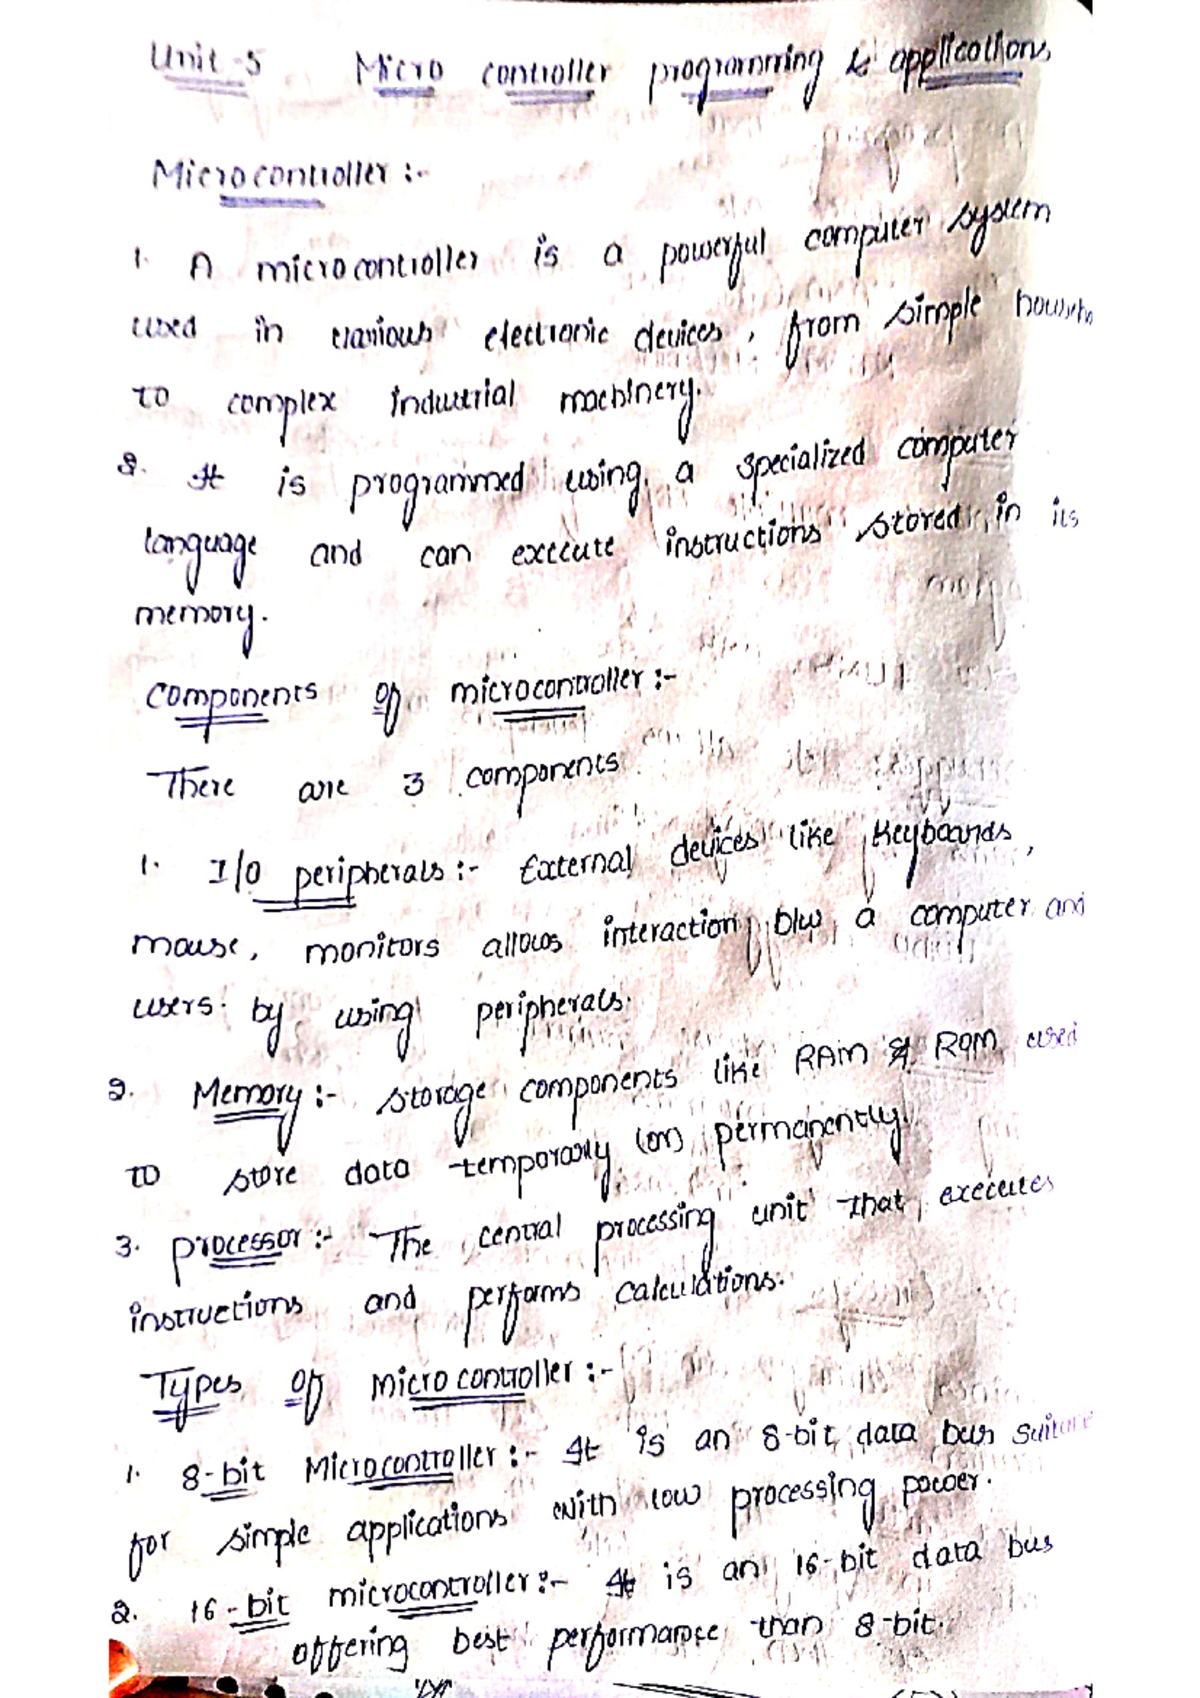 Unit-5 Micro controller programming & applications
Microcontroller :-
1. A microcontroller is a powerful computer system
used in various electronic devices, from simple
to complex industrial machinery.
2. It is programmed using a specialized computer
language and can execute instructions stored in its
memory.
Components of microcontroller :-
There are 3 components
1. I/O peripherals :- External devices like Keyboards,
mouse, monitors allows interaction b/w a computer and
users by using peripherals.
2. Memory :- storage components like RAM & ROM used
to store data temporarily (or) permanently.
3. processor :- The central processing unit that executes
instructions and performs calculations.
Types of Micro controller :-
1. 8-bit Microcontroller :- It is an 8-bit data bus
for simple applications with low processing power.
2. 16-bit microcontroller :- It is an 16-bit data bus
offering best performance than 8-bit.